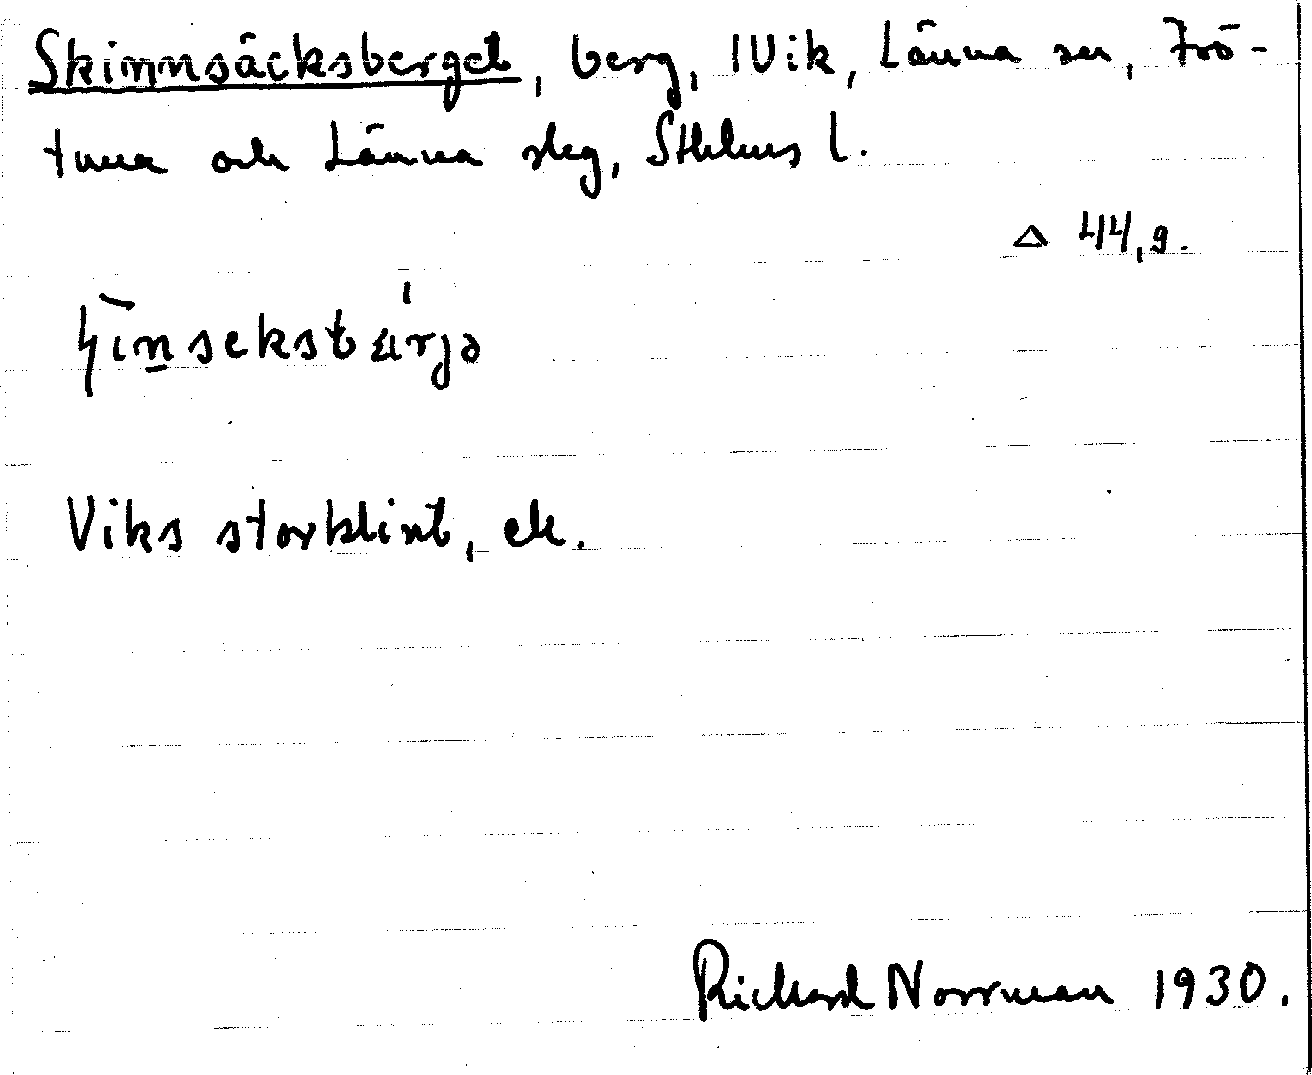 Skinnsäcksberget, berg, 1 Vik, Länna sn, Frö-
tuna och Länna skg, Sthlms l.
△ 44,9.
Viks storklint, ek.
Richard Norrman 1930.